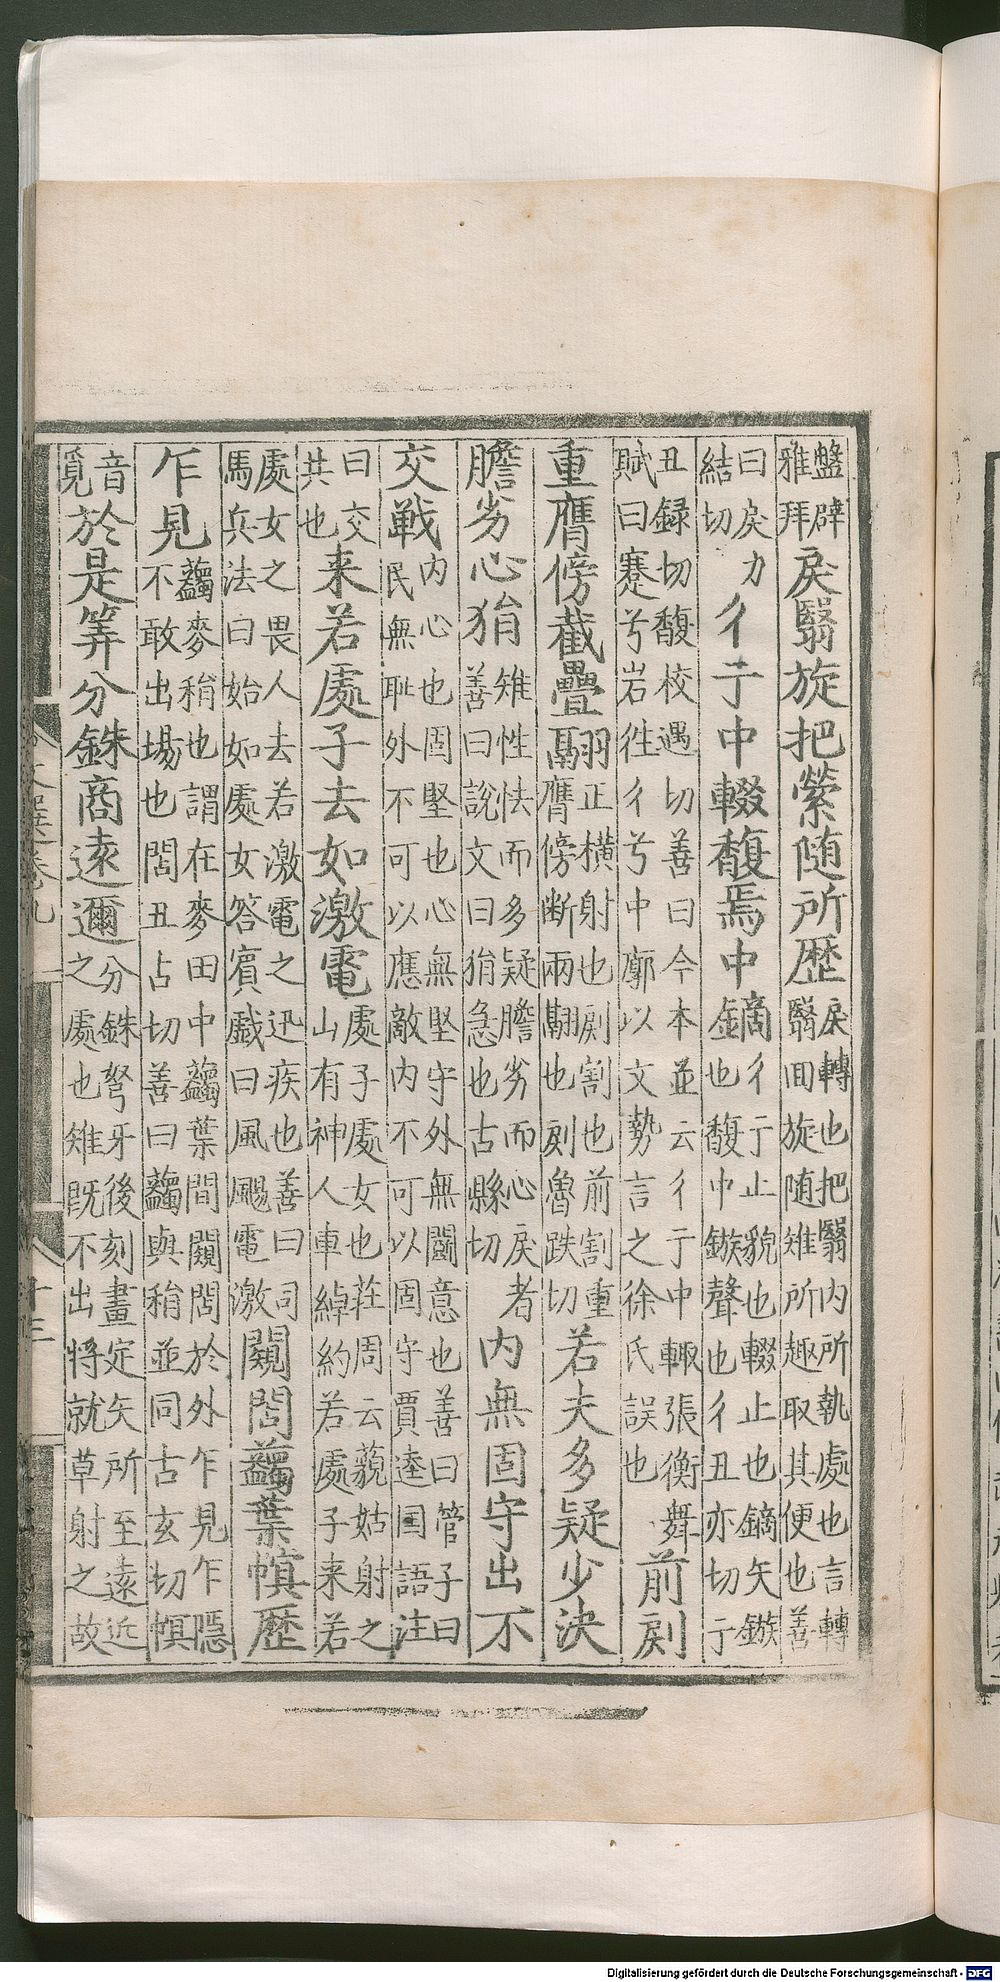 盤辟
雅拜
戾翳旋把縈随所歴
戾轉也把翳内所執處也言轉
翳回旋随雉所趣取其便也善
曰戾力
結切
彳亍中輟馥焉中鏑
彳亍止貌也輟止也鏑矢鏃
也馥中鏃聲也彳丑亦切亍
丑録切馥校遇切善曰今本並云彳亍中輙張衡舞
賦曰蹇兮宕往彳兮中廓以文勢言之徐氏誤也
前剡
重膺傍截疊翮
羽正横射也剡割也前割重
膺傍断兩翮也剡魯跌切
若夫多疑少決
膽劣心狷
雉性怯而多疑膽劣而心戾者
善曰說文曰狷急也古縣切
内無固守出不
交戦
内心也固堅也心無堅守外無鬭意也善曰管子曰
民無耻外不可以應敵内不可以固守賈逵国語注
曰交
共也
来若處子去如激電
處子處女也莊周云藐姑射之
山有神人車綽約若處子来若
處女之畏人去若激電之迅疾也善曰司
馬兵法曰始如處女答賓戲曰風颺電激
闚䦧蘜葉幎歴
乍見
蘜麥稍也謂在麥田中蘜葉間闚䦧於外乍見乍隱
不敢出場也䦧丑占切善曰蘜與稍並同古玄切幎
音
覓
於是筭分銖商逺邇
分銖弩牙後刻畫定矢所至逺近
之處也雉既不出将就草射之故
文選卷九
十三
Digitalisierung gefördert durch die Deutsche Forschungsgemeinschaft - DFG